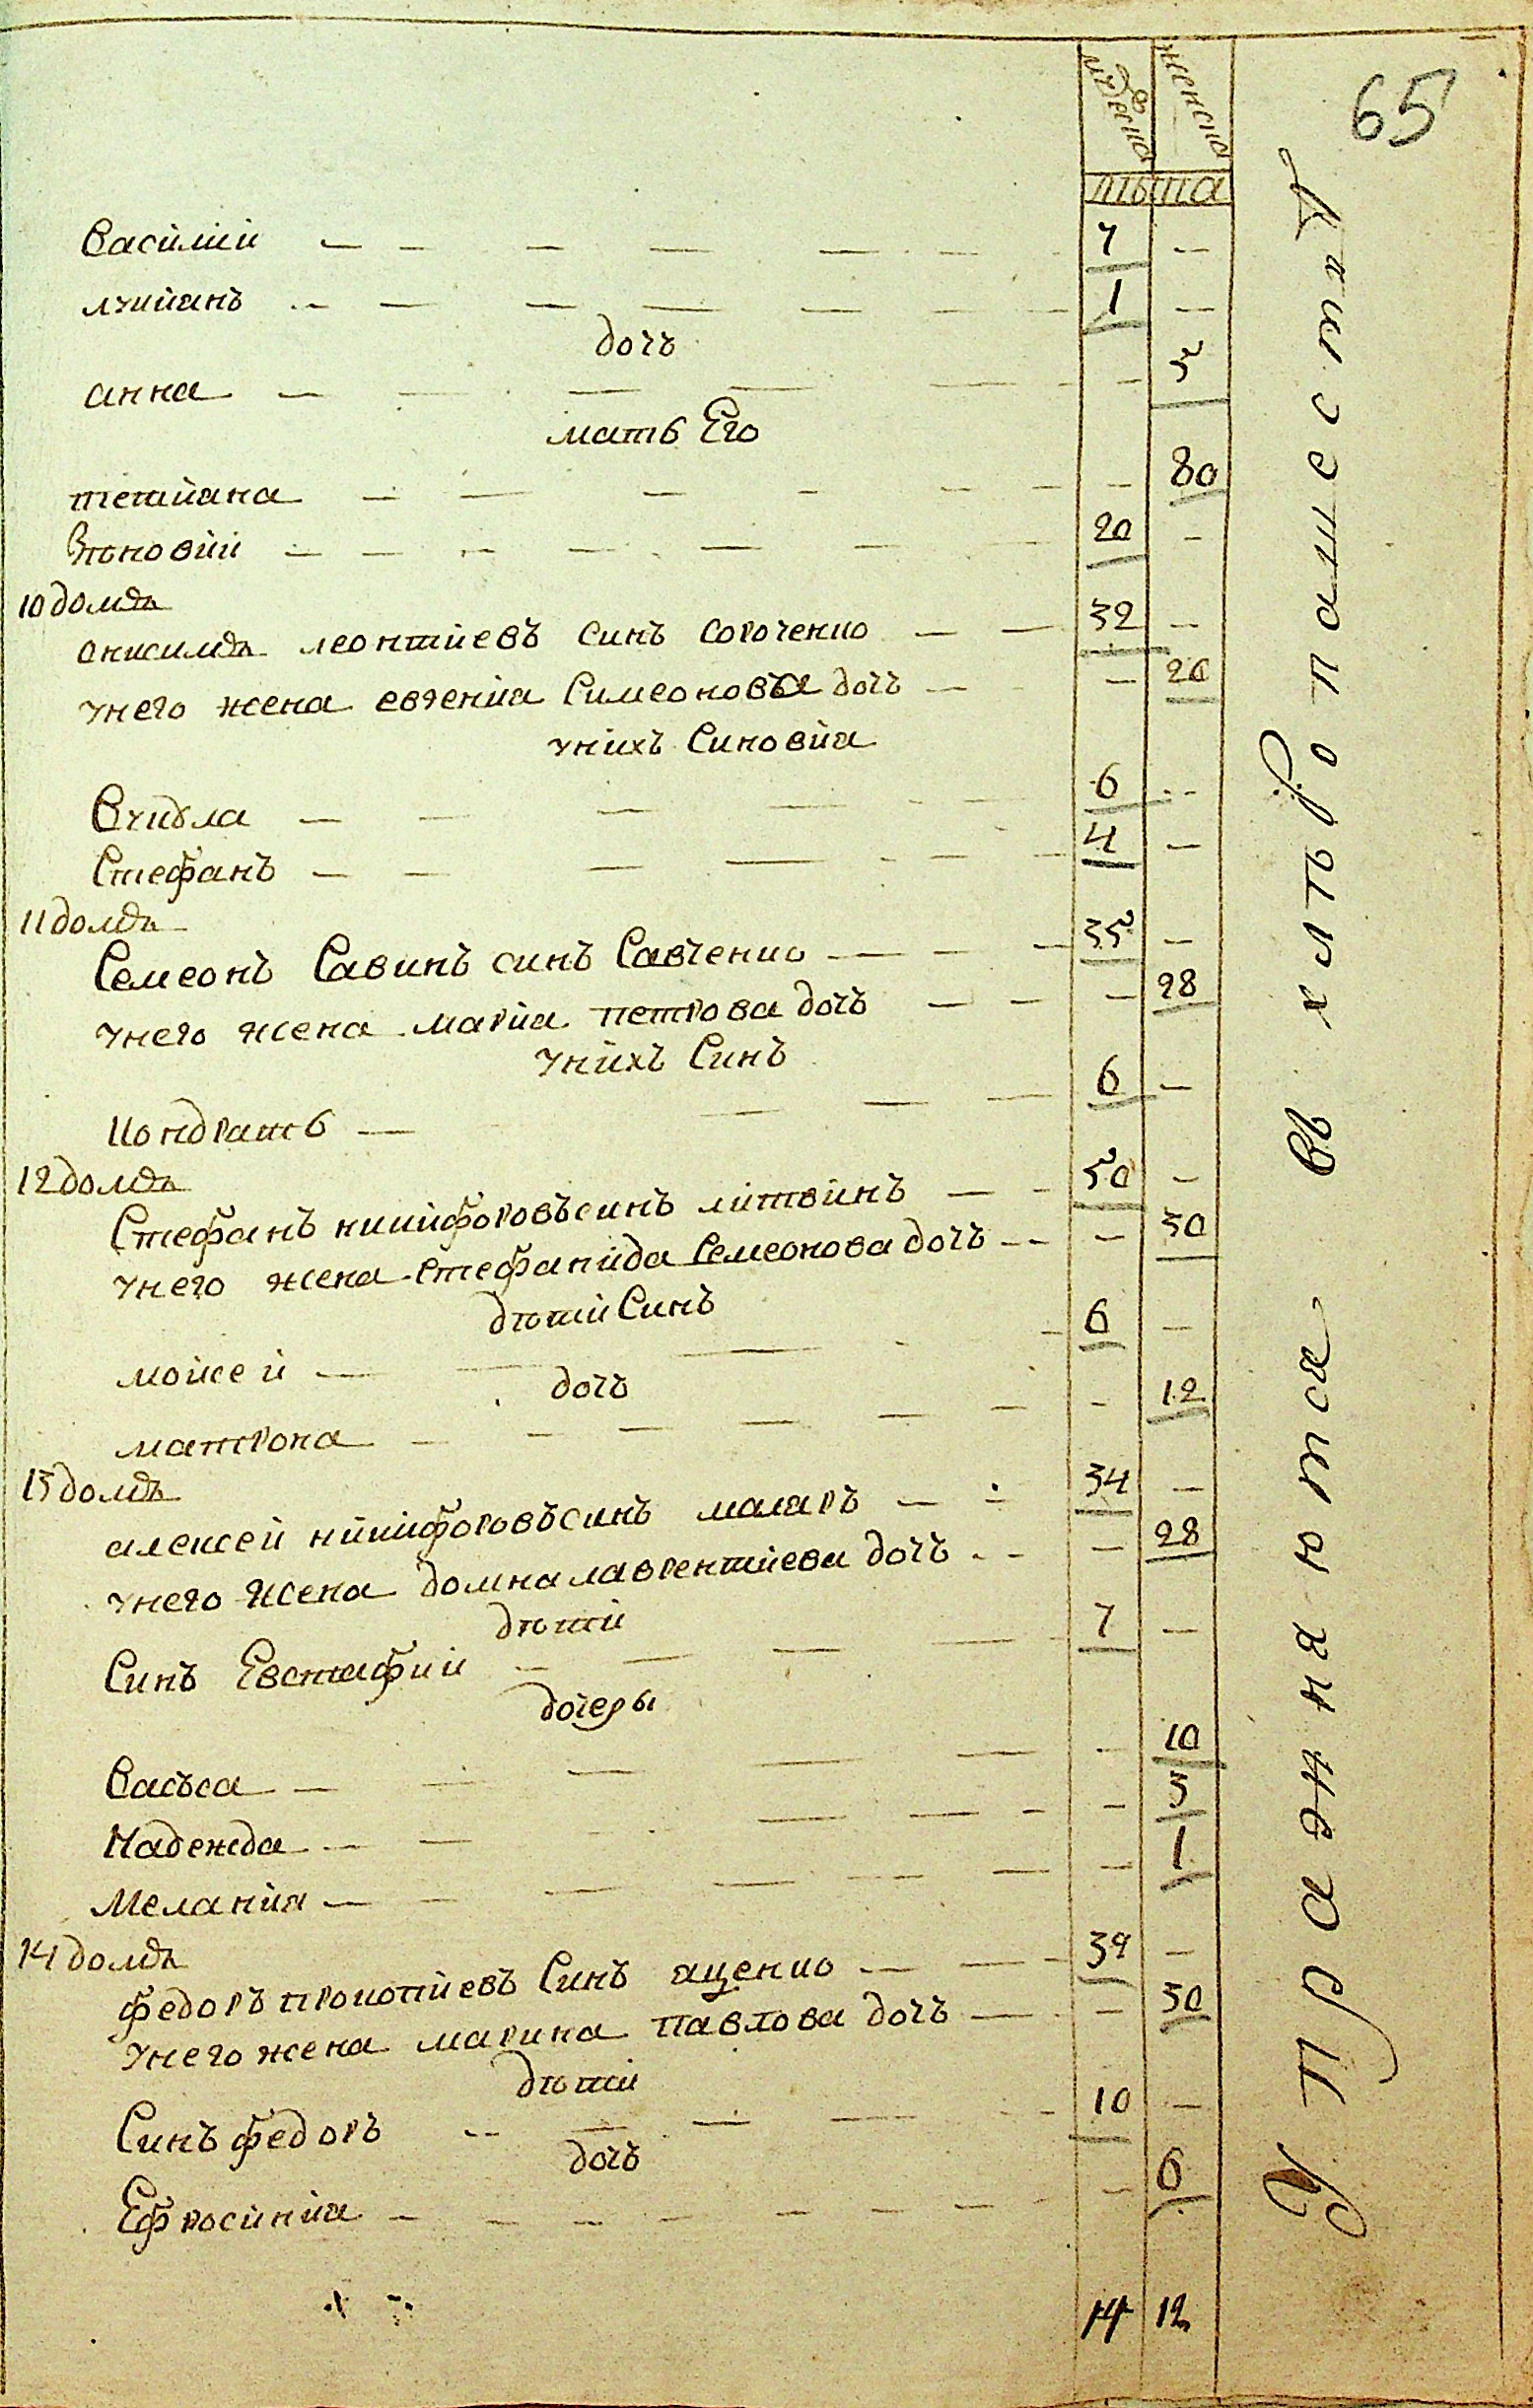 65
мужеска женска
лѣта
Василий — 7 —
лукиянъ — 1 —
дочъ
анна — — 5
мать Его
тетияна — — 80
Зѣновий — 20 —
10 домъ
онисимъ леонтиевъ синъ сороченко — 32 —
унего жена евгения Симеонова дочъ — — 26
унихъ Синовия
Стефанъ — 4 —
11 домъ
Семеонъ Савинъ синъ Савченко — 35 —
унего жена мария петрова дочъ — — 28
унихъ Синъ
Кондрать — 6 —
12 домъ
Стефанъ никифоровъ синъ литвинъ — 50 —
унего жена Стефанида Семеонова дочъ — — 30
дѣтий Синъ
моисей — 6 —
дочъ
матрона — — 12
13 домъ
алексей никифоровъ синъ маляръ — 34 —
унего жена домна лаврентиева дочъ — — 28
дѣтий
Синъ Евстафий — 7 —
дочеры
Васъса — — 10
Надежда — — 3
Мелания — — 1
14 домъ
федоръ прокопиевъ Синъ яценко — 39 —
унего жена марина павлова дочъ — — 30
дѣтий
Синъ федоръ — 10 —
дочъ
Ефросиния — — 6
14 12